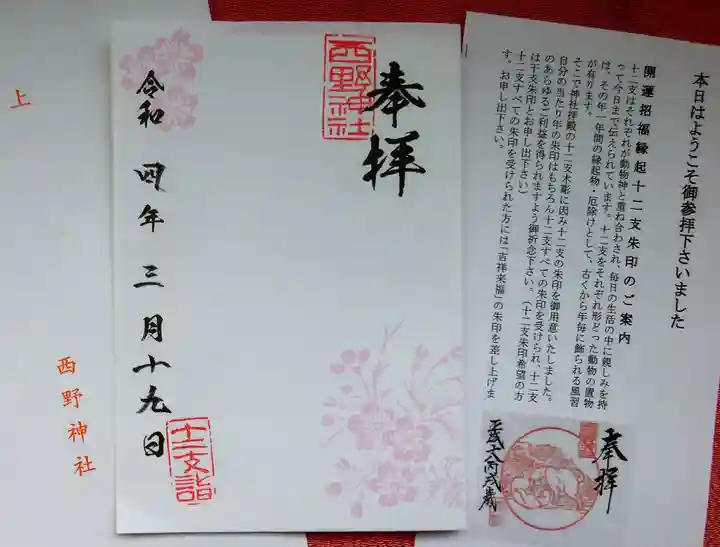 本日はようこそ御参拝下さいました
開運招福縁起十二支朱印のご案内
十二支はそれぞれが動物神と重ね合わされ、毎日の生活の中に親しみを持
って今日まで伝えられています。十二支をそれぞれ形どった動物の置物
は、その年一年間の縁起物・厄除けとして、古くから年毎に飾られる風習
が有ります。
そこで神社拝殿の十二支木彫に因み十二支の朱印を御用意いたしました。
自分の当たり年の朱印はもちろん十二支すべての朱印を受けられ、十二支
のあらゆるご利益を得られますよう御祈念下さい。(十二支朱印希望の方
は干支朱印とお申し出下さい)
十二支すべての朱印を受けられた方には「吉祥来福」の朱印を差し上げま
す。お申し出下さい。
奉拝
奉拝
西野神社
令和四年三月十九日
十二支詣
上
西野神社